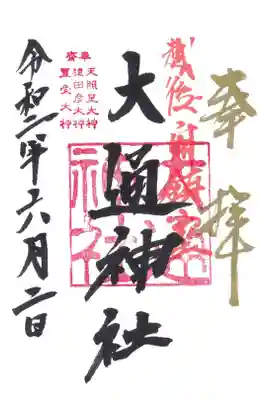 奉拝
大道神社
奉斎
天照皇大神
猿田彦大神
豊受大神
令和二年六月二日